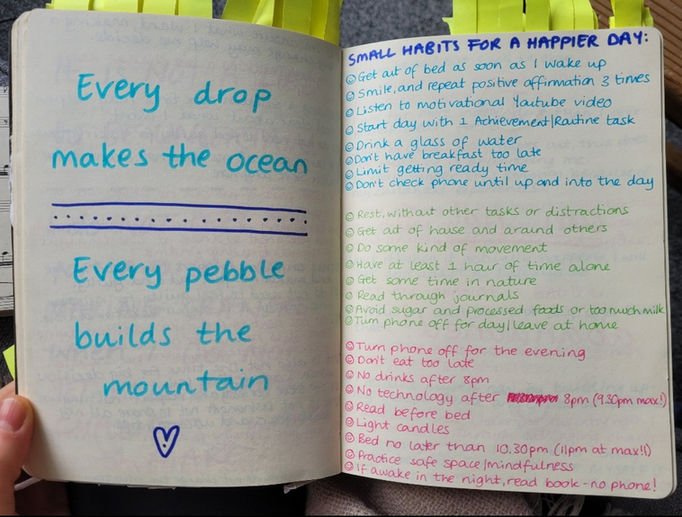 Every drop
makes the ocean
Every pebble
builds the
mountain
SMALL HABITS FOR A HAPPIER DAY:
Get out of bed as soon as I wake up
Smile, and repeat positive affirmation 3 times
Listen to motivational Youtube video
Start day with 1 Achievement/Routine task
Drink a glass of water
Don't have breakfast too late
Limit getting ready time
Don't check phone until up and into the day
Rest, without other tasks or distractions
Get out of house and around others
Do some kind of movement
Have at least 1 hour of time alone
Get some time in nature
Read through journals
Avoid sugar and processed foods or too much milk
Turn phone off for day/leave at home
Turn phone off for the evening
Don't eat too late
No drinks after 8pm
No technology after 8pm (9.30pm max!)
Read before bed
Light candles
Bed no later than 10.30pm (11pm at max!!)
Practice safe space/mindfulness
If awake in the night, read book - no phone!